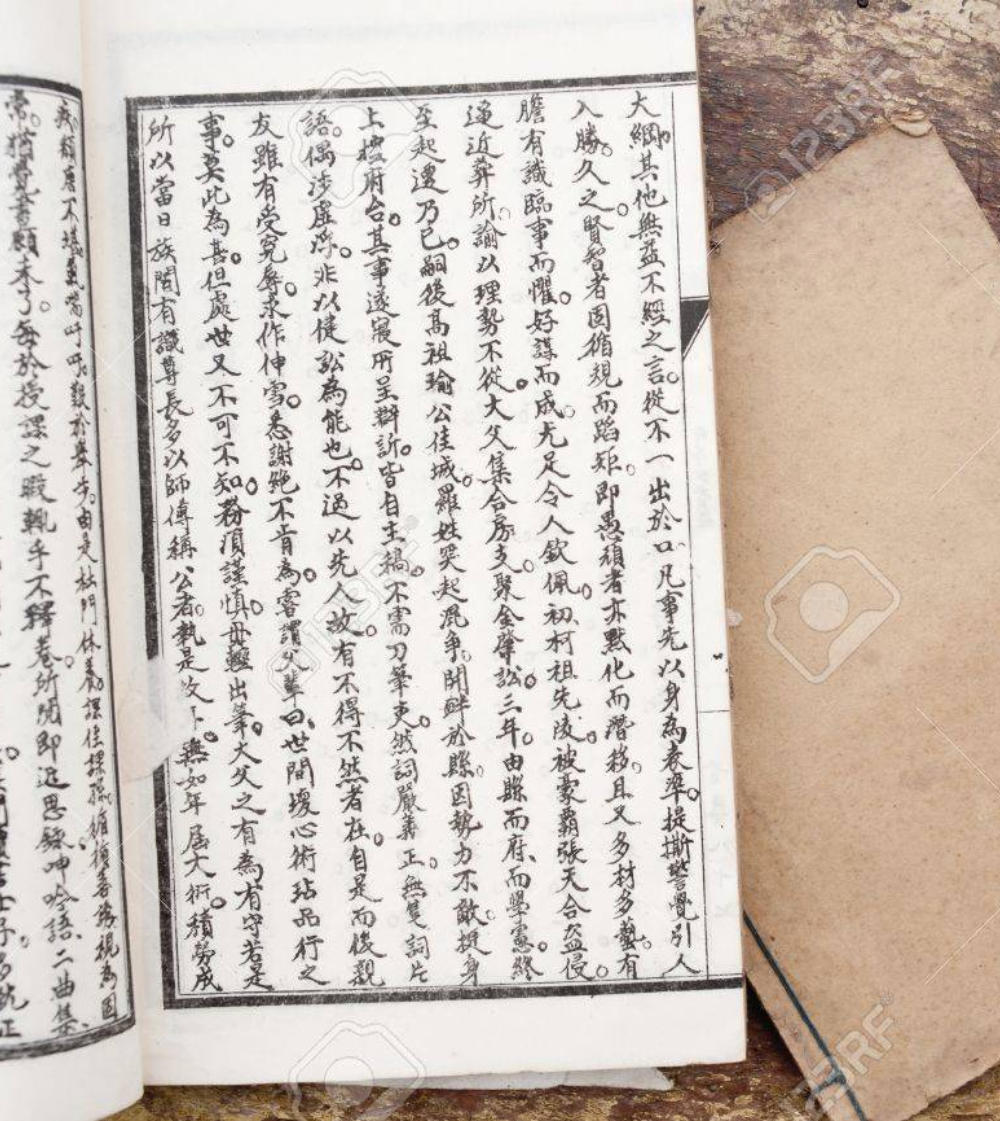 大綱其他無益不經之言。從不一出於口。凡事先以身為表準。提撕警覺引人
入勝。久之。賢智者固循規而蹈矩。即愚頑者亦默化而潛移。且又多材多藝。有
膽有識臨事而懼。好謀而成。尤足令人欽佩。初柯祖先陵。被豪霸張天合盜侵
逼近葬所。諭以理勢不從。大父集合房支。聚金肇訟。三年。由縣而府、而學憲。終
至起遷乃已。嗣後高祖瑜公佳城。羅姓突起混爭。開衅於縣。因勢力不敵。挺身
上控府台。其事遂寢。所呈辯訴。皆自主稿。不需刀筆吏。然詞嚴義正。無隻詞片
語。偶涉虛浮。非以健訟為能也。不過以先人故。有不得不然者在。自是而後親
友雖有受冤辱。求作伸雪。悉謝絕不肯為。嘗謂父輩曰、世間壞心術玷品行之
事。莫此為甚。但處世又不可不知。務須謹慎。毋輕出筆。大父之有為有守若是
所以當日族間有識尊長。多以師傅稱公者。執是故
無如年屆大衍。積勞成
疾。頹唐不堪。氣喘吁吁。艱於舉步。由是杜門休養。課佳課孫。循循善誘。視為固
常。猶覺書願未了。每於授課之暇。執手不釋卷。所閱即近思錄呻吟語、二曲集、
123RF
123RF
123RF
123RF